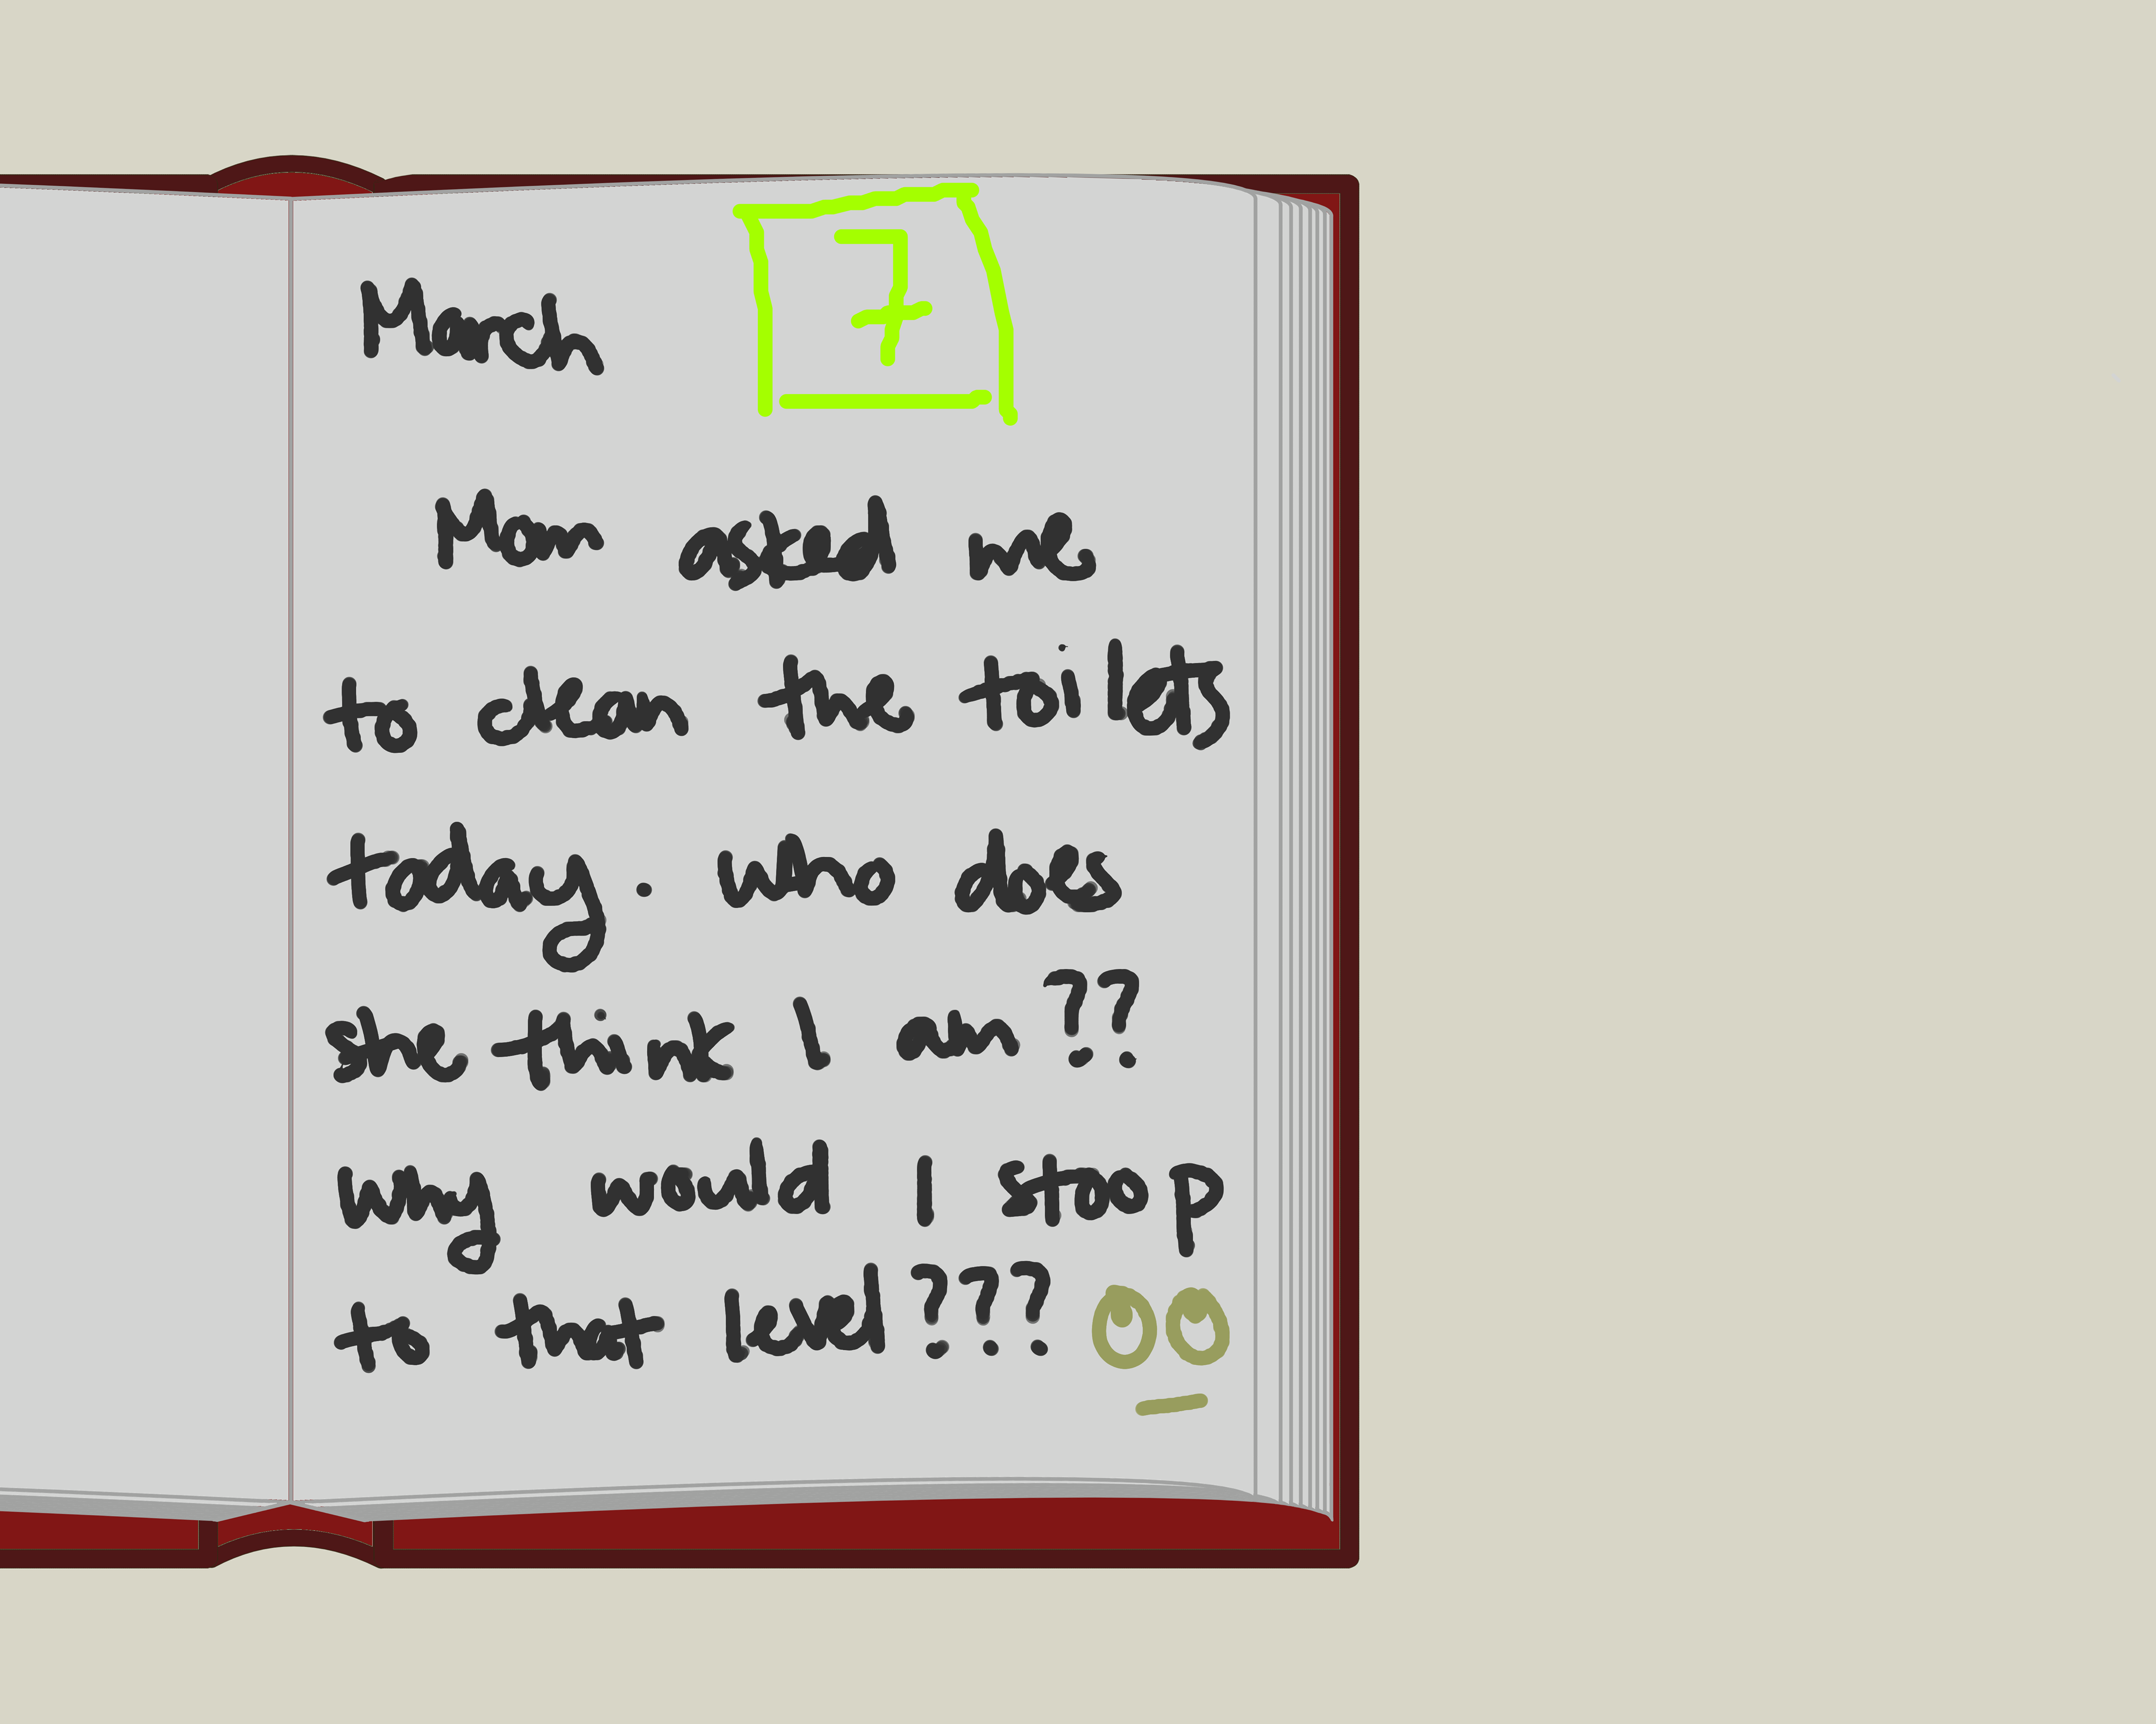 March 7
Mom asked me
to clean the toilets
today. Who does
she think I am??
Why would I stoop
to that level???